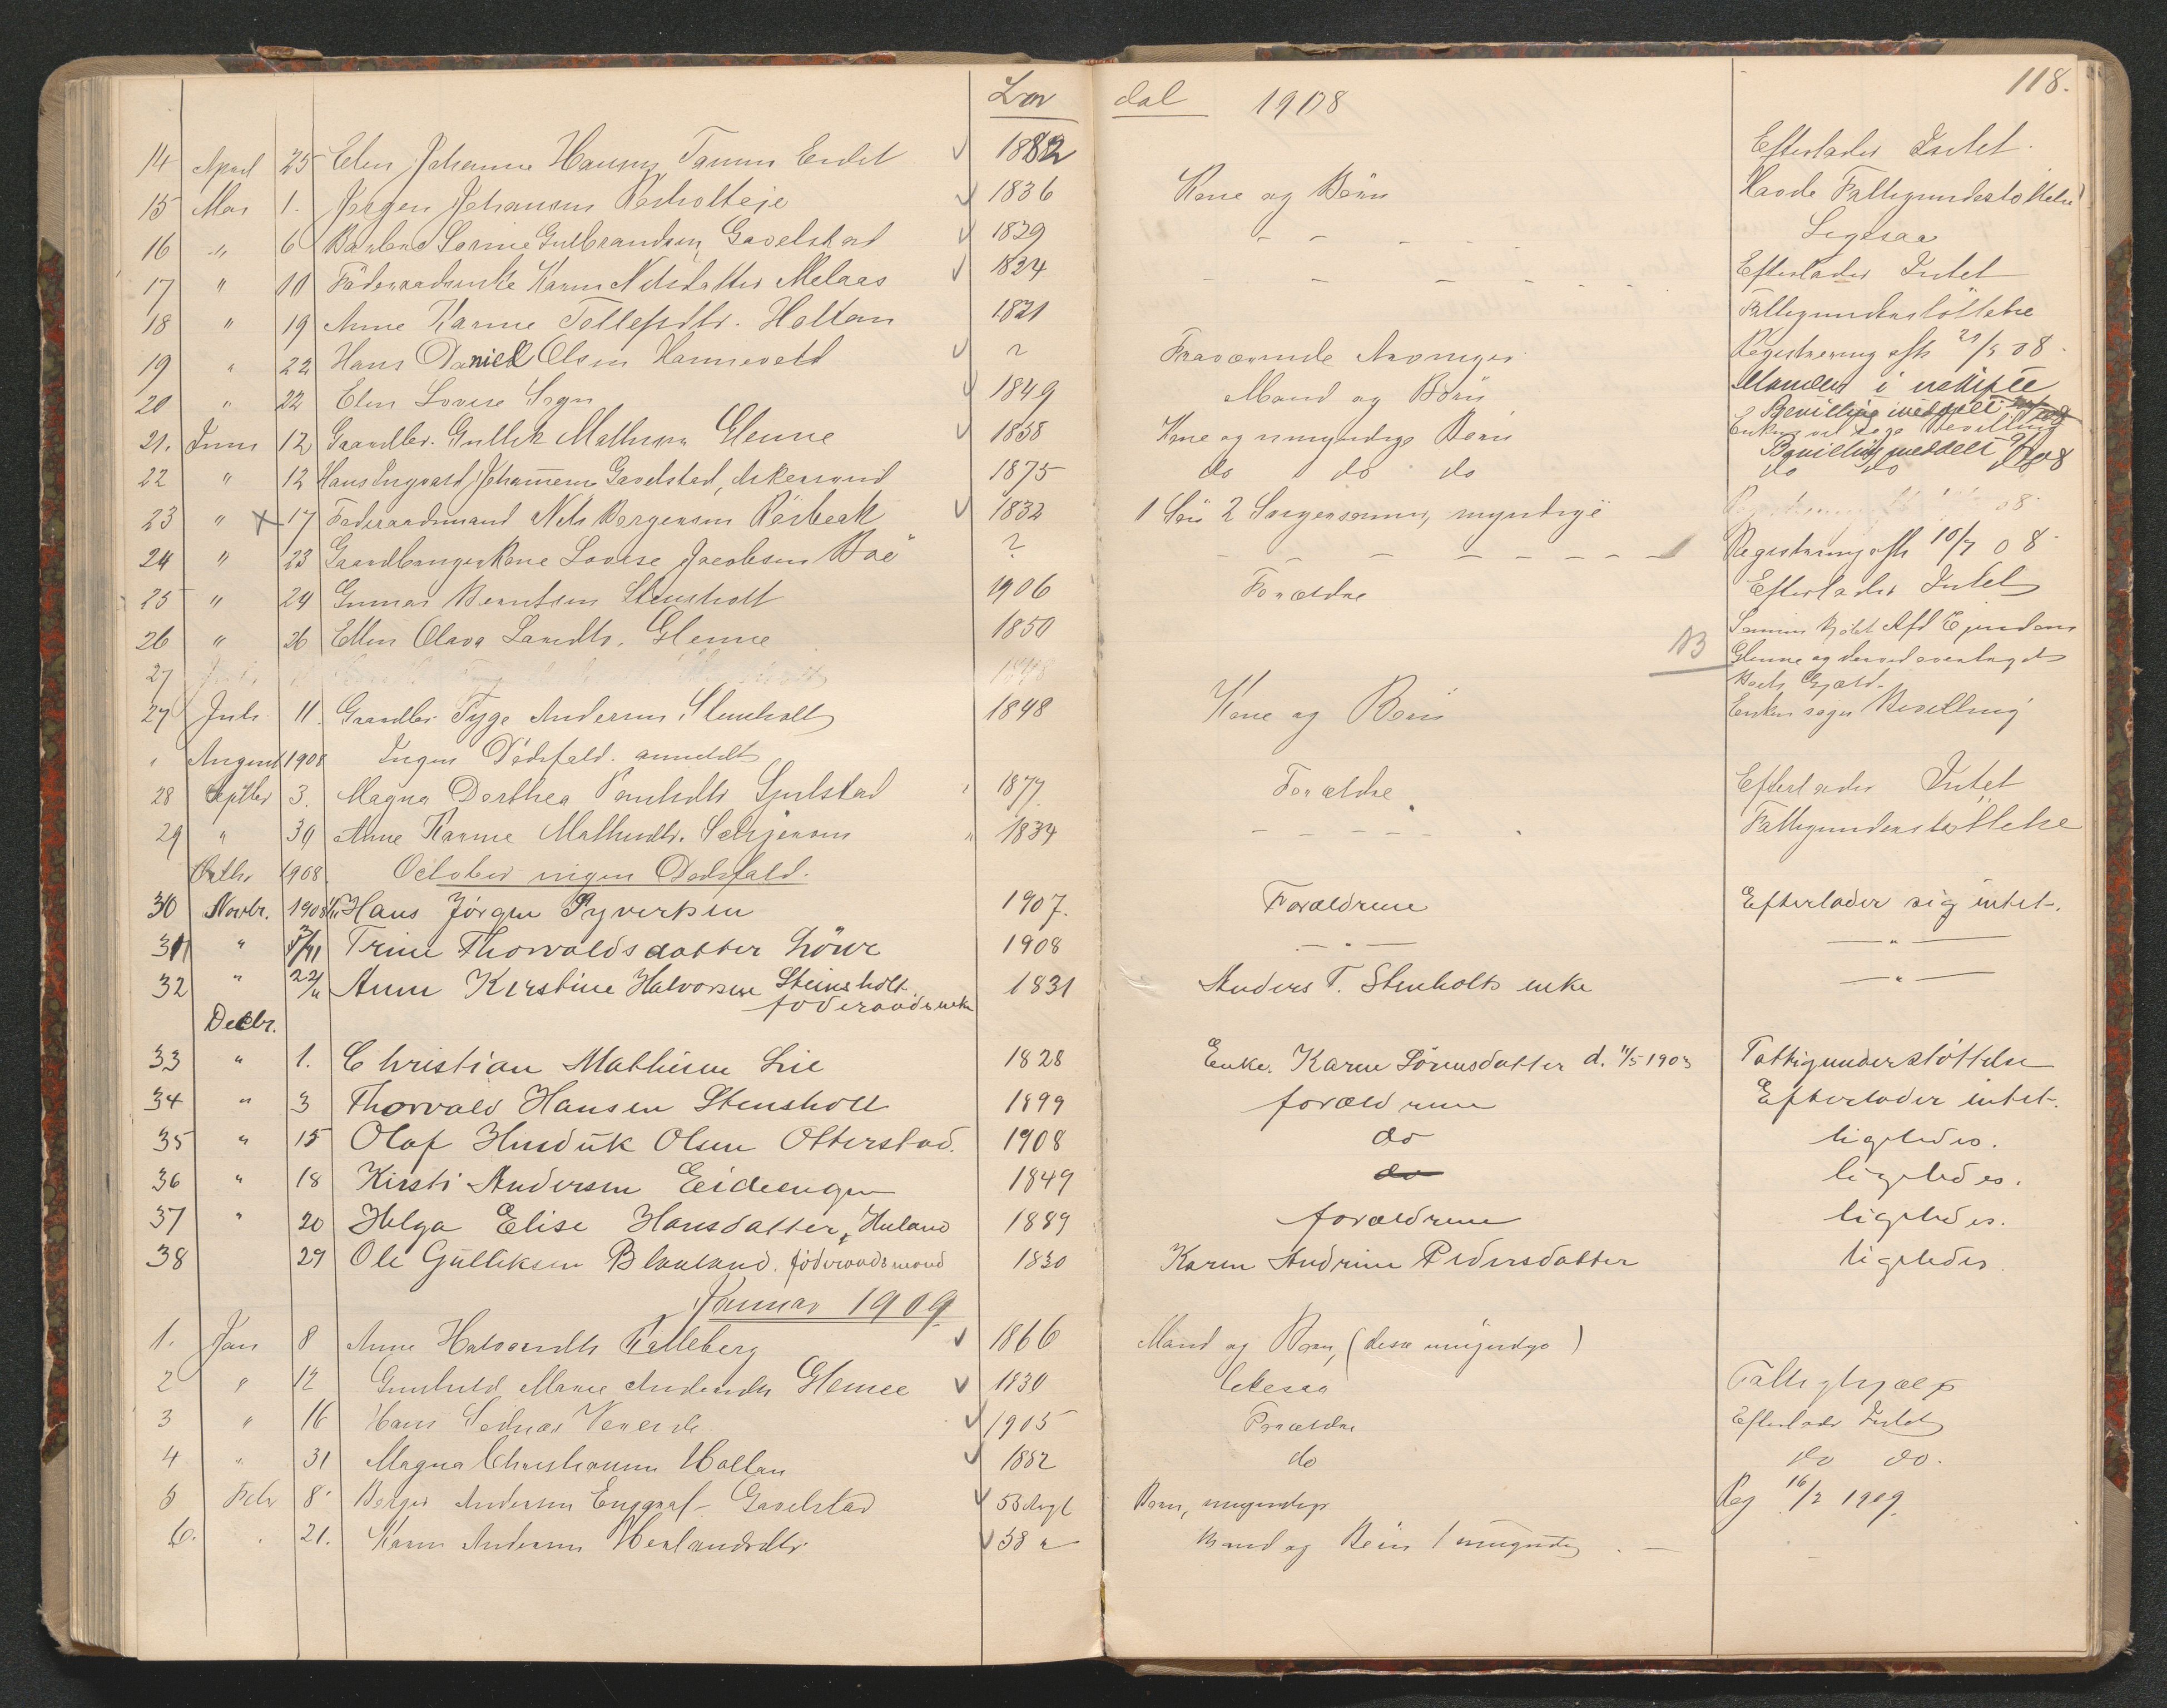 Lar dal 1908 118.
14 April 25 Elen Johanne Hansen, Tammi Eidet 1882 Efterlader Intet.
15 Mai 1. Jørgen Johansen 1836 Kone og Børn Havde Fattigunderstøttelse
16 " 6 Barbra Sorine Gulbrandsen, Gavelstad 1839 - - - - Ligesaa
17 " 10 Føderaadsenke Karen Nilsdatter Melaas 1824 - - - - - - Efterlader Intet
18 " 19 Anne Karine Tollefsdtr. Holtan 1821 Fattigunderstøttelse
19 " 22 Hans Daniel Olsen Hannevold ? Fraværende Arvinger Registrering afh 29/5 08
20 " 22 Elen Lovise 1849 Mand og Børn Manden i uskiftet
Bevilling meddelt
21. Juni 12 Gaardbr. Gullik Mathisen Glenne 1858 Kone og umyndige Børn Enken vil søge Bevilling
Bevilling meddelt
22 " 12 Hans Ingvard Johannesen Gavelstad, 1875 do do do do do
23 " 17 Føderaadsmand Nils Børgersen 1832 1 Søn 2 myndige 08
24 " 23 Gaardbrugerkone Lovise Jacobsen Boe ? - - - - - - - Registrering afh 10/7 08
25 " 24 Gunnar Berntsen Stensholt 1906 Forældre Efterlader Intet
26 " 26 Ellen Olava Glenne 1850 Sønnen kjøbt Afd Ejendom
NB Glenne og derved overtaget
Boets Gjæld.
27 1848
27 Juli 11. Gaardbr. Tyge Andersen Stensholt 1848 Kone og Børn Enken søger Bevilling
" August 1908 Ingen Dødsfald anmeldt
28 Septbr 3. Magna Dorthea 1877 Forældre Efterlader Intet
29 " 30 Anne Karine Mathisdtr. 1834 - - - - - Fattigunderstøttelse
Octbr 1908 October ingen Dødsfald.
30 Novbr. 1908 Hans Jørgen Syvertsen 1907. Forældrene Efterlader sig intet.
31 " 5/11 Trine Thorvaldsdatter Løwe 1908 — " — — " —
32 " 22/11 Anne Kirstine Halvorsen Steinsholt 1831 Anders T. Stenholts enke — " —
føderaadsenke
Decbr.
33 " 1. Christian Mathisen Lie 1828 Enke. Karen Sørensdatter d. 11/5 1903 Fattigunderstøttelse
34 " 3 Thorvald Hansen Stensholt 1899 forældrene Efterlader intet.
35 " 15 Olaf Hendrik Olsen Otterstad. 1908 do ligeledes.
36 " 18 Kirsti Andersen Eideengen 1849 do ligeledes.
37 " 20 Helga Elise Hansdatter, Huland 1889 forældrene ligeledes.
38 29 Ole Gulliksen Blauland. føderaadsmand 1830 Karen Andrine Pedersdatter ligeledes.
Januar 1909
1. Jan 8 Anne Halvorsdtr Kalleberg 1866 Mand og Børn, (disse umyndige)
2 " 12 Gunhild Marie Andersdtr Glenne 1830 Ligesaa Fattighjælp
3 " 16 Hans 1905 Forældre Efterlader Intet
4 " 31 Magna Christiansen Holtan 1882 do do do.
5 Febr 8 Berger Andersen Enggraf - Gavelstad 53 Aar gl Børn, umyndige Reg 16/2 1909.
6. . 21. Karen Andersen 58 " Mand og Børn 1 umyndig . —